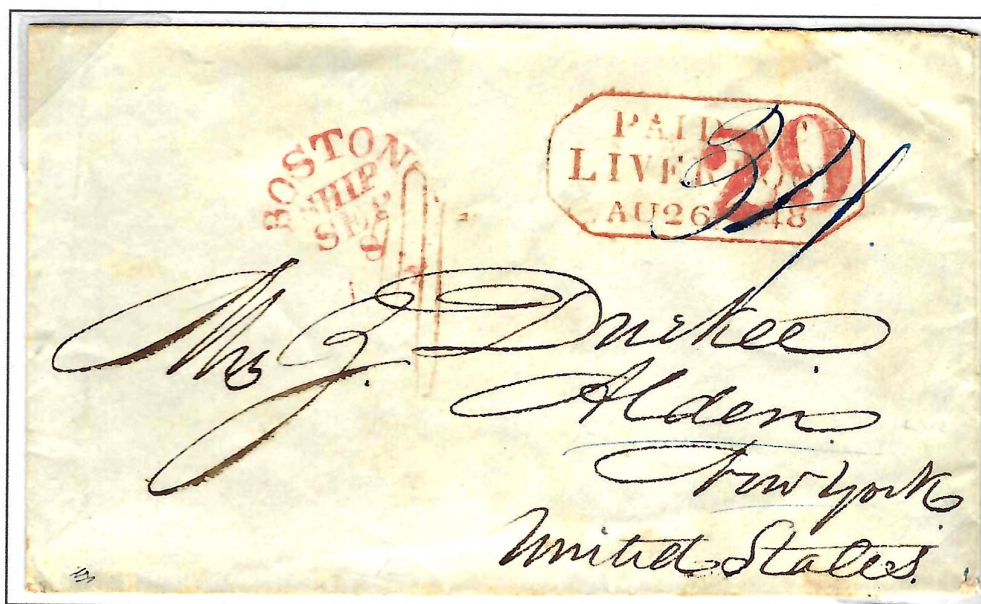 BOSTON
SHIP
SEP
8
PAID AT
LIVERPOOL
AU 26 1848
29
34
Mrs J. Durkee
Alden
New York
United States.